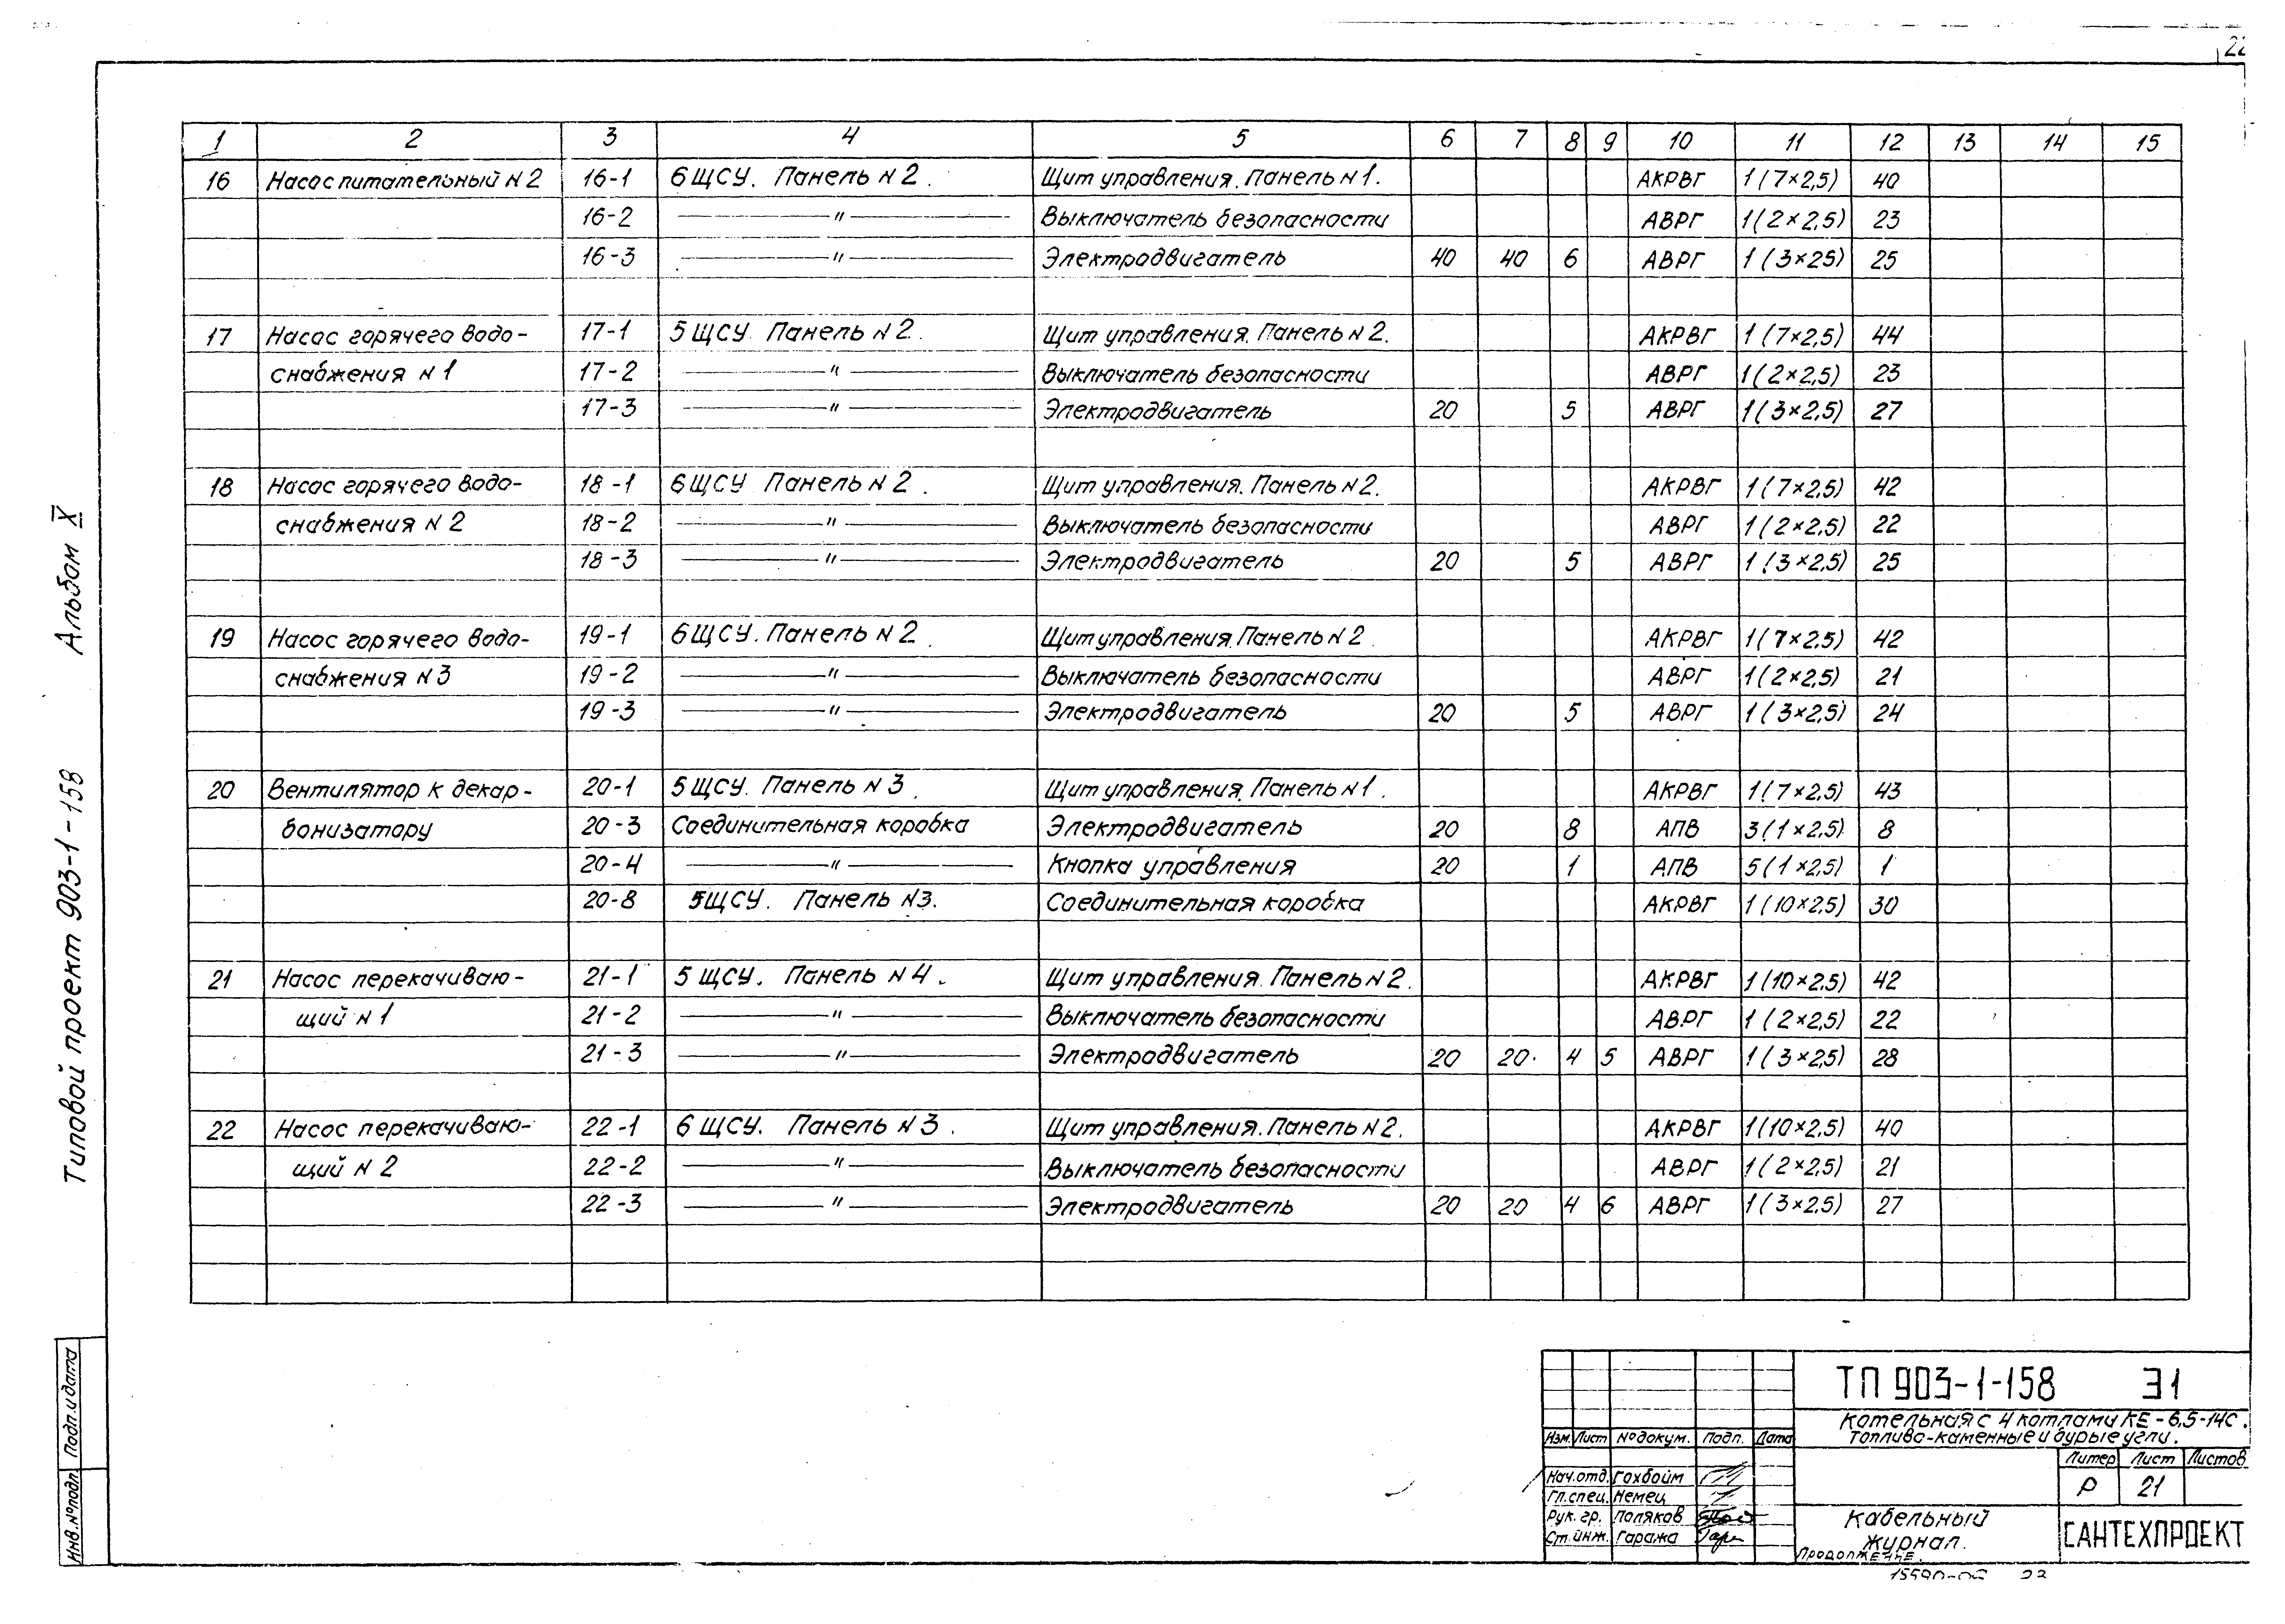 22
1 2 3 4 5 6 7 8 9 10 11 12 13 14 15
16 Насос питательный N2 16-1 6 ЩСУ. Панель N2. Щит управления. Панель N1. АКРВГ 1(7×2,5) 40
16-2 —〃— Выключатель безопасности АВРГ 1(2×2,5) 23
16-3 —〃— Электродвигатель 40 40 6 АВРГ 1(3×25) 25
17 Насос горячего водо- 17-1 5 ЩСУ. Панель N2. Щит управления. Панель N2. АКРВГ 1(7×2,5) 44
снабжения N1 17-2 —〃— Выключатель безопасности АВРГ 1(2×2,5) 23
17-3 —〃— Электродвигатель 20 5 АВРГ 1(3×2,5) 27
18 Насос горячего водо- 18-1 6 ЩСУ Панель N2. Щит управления. Панель N2. АКРВГ 1(7×2,5) 42
снабжения N2 18-2 —〃— Выключатель безопасности АВРГ 1(2×2,5) 22
18-3 —〃— Электродвигатель 20 5 АВРГ 1(3×2,5) 25
19 Насос горячего водо- 19-1 6 ЩСУ. Панель N2. Щит управления. Панель N2. АКРВГ 1(7×2,5) 42
снабжения N3 19-2 —〃— Выключатель безопасности АВРГ 1(2×2,5) 21
19-3 —〃— Электродвигатель 20 5 АВРГ 1(3×2,5) 24
20 Вентилятор к декар- 20-1 5 ЩСУ. Панель N3. Щит управления. Панель N1. АКРВГ 1(7×2,5) 43
бонизатору 20-3 Соединительная коробка Электродвигатель 20 8 АПВ 3(1×2,5) 8
20-4 —〃— Кнопка управления 20 1 АПВ 5(1×2,5) 1
20-8 5ЩСУ. Панель N3. Соединительная коробка АКРВГ 1(10×2,5) 30
21 Насос перекачиваю- 21-1 5 ЩСУ. Панель N4. Щит управления. Панель N2. АКРВГ 1(10×2,5) 42
щий N1 21-2 —〃— Выключатель безопасности АВРГ 1(2×2,5) 22
21-3 —〃— Электродвигатель 20 20 4 5 АВРГ 1(3×2,5) 28
22 Насос перекачиваю- 22-1 6 ЩСУ. Панель N3. Щит управления. Панель N2. АКРВГ 1(10×2,5) 40
щий N2 22-2 —〃— Выключатель безопасности АВРГ 1(2×2,5) 21
22-3 —〃— Электродвигатель 20 20 4 6 АВРГ 1(3×2,5) 27
Типовой проект 903-1-158 Альбом X
Инв.№подл Подп.и дата
ТП 903-1-158 Э1
Котельная с 4 котлами КЕ-6,5-14С.
Топливо-каменные и бурые угли.
Изм. Лист №докум. Подп. Дата
Литер Лист Листов
Р 21
Нач.отд. Гохбойм
Гл.спец. Немец
Рук.гр. Поляков
Ст.инж. Гаража
Кабельный
журнал.
Продолжение.
САНТЕХПРОЕКТ